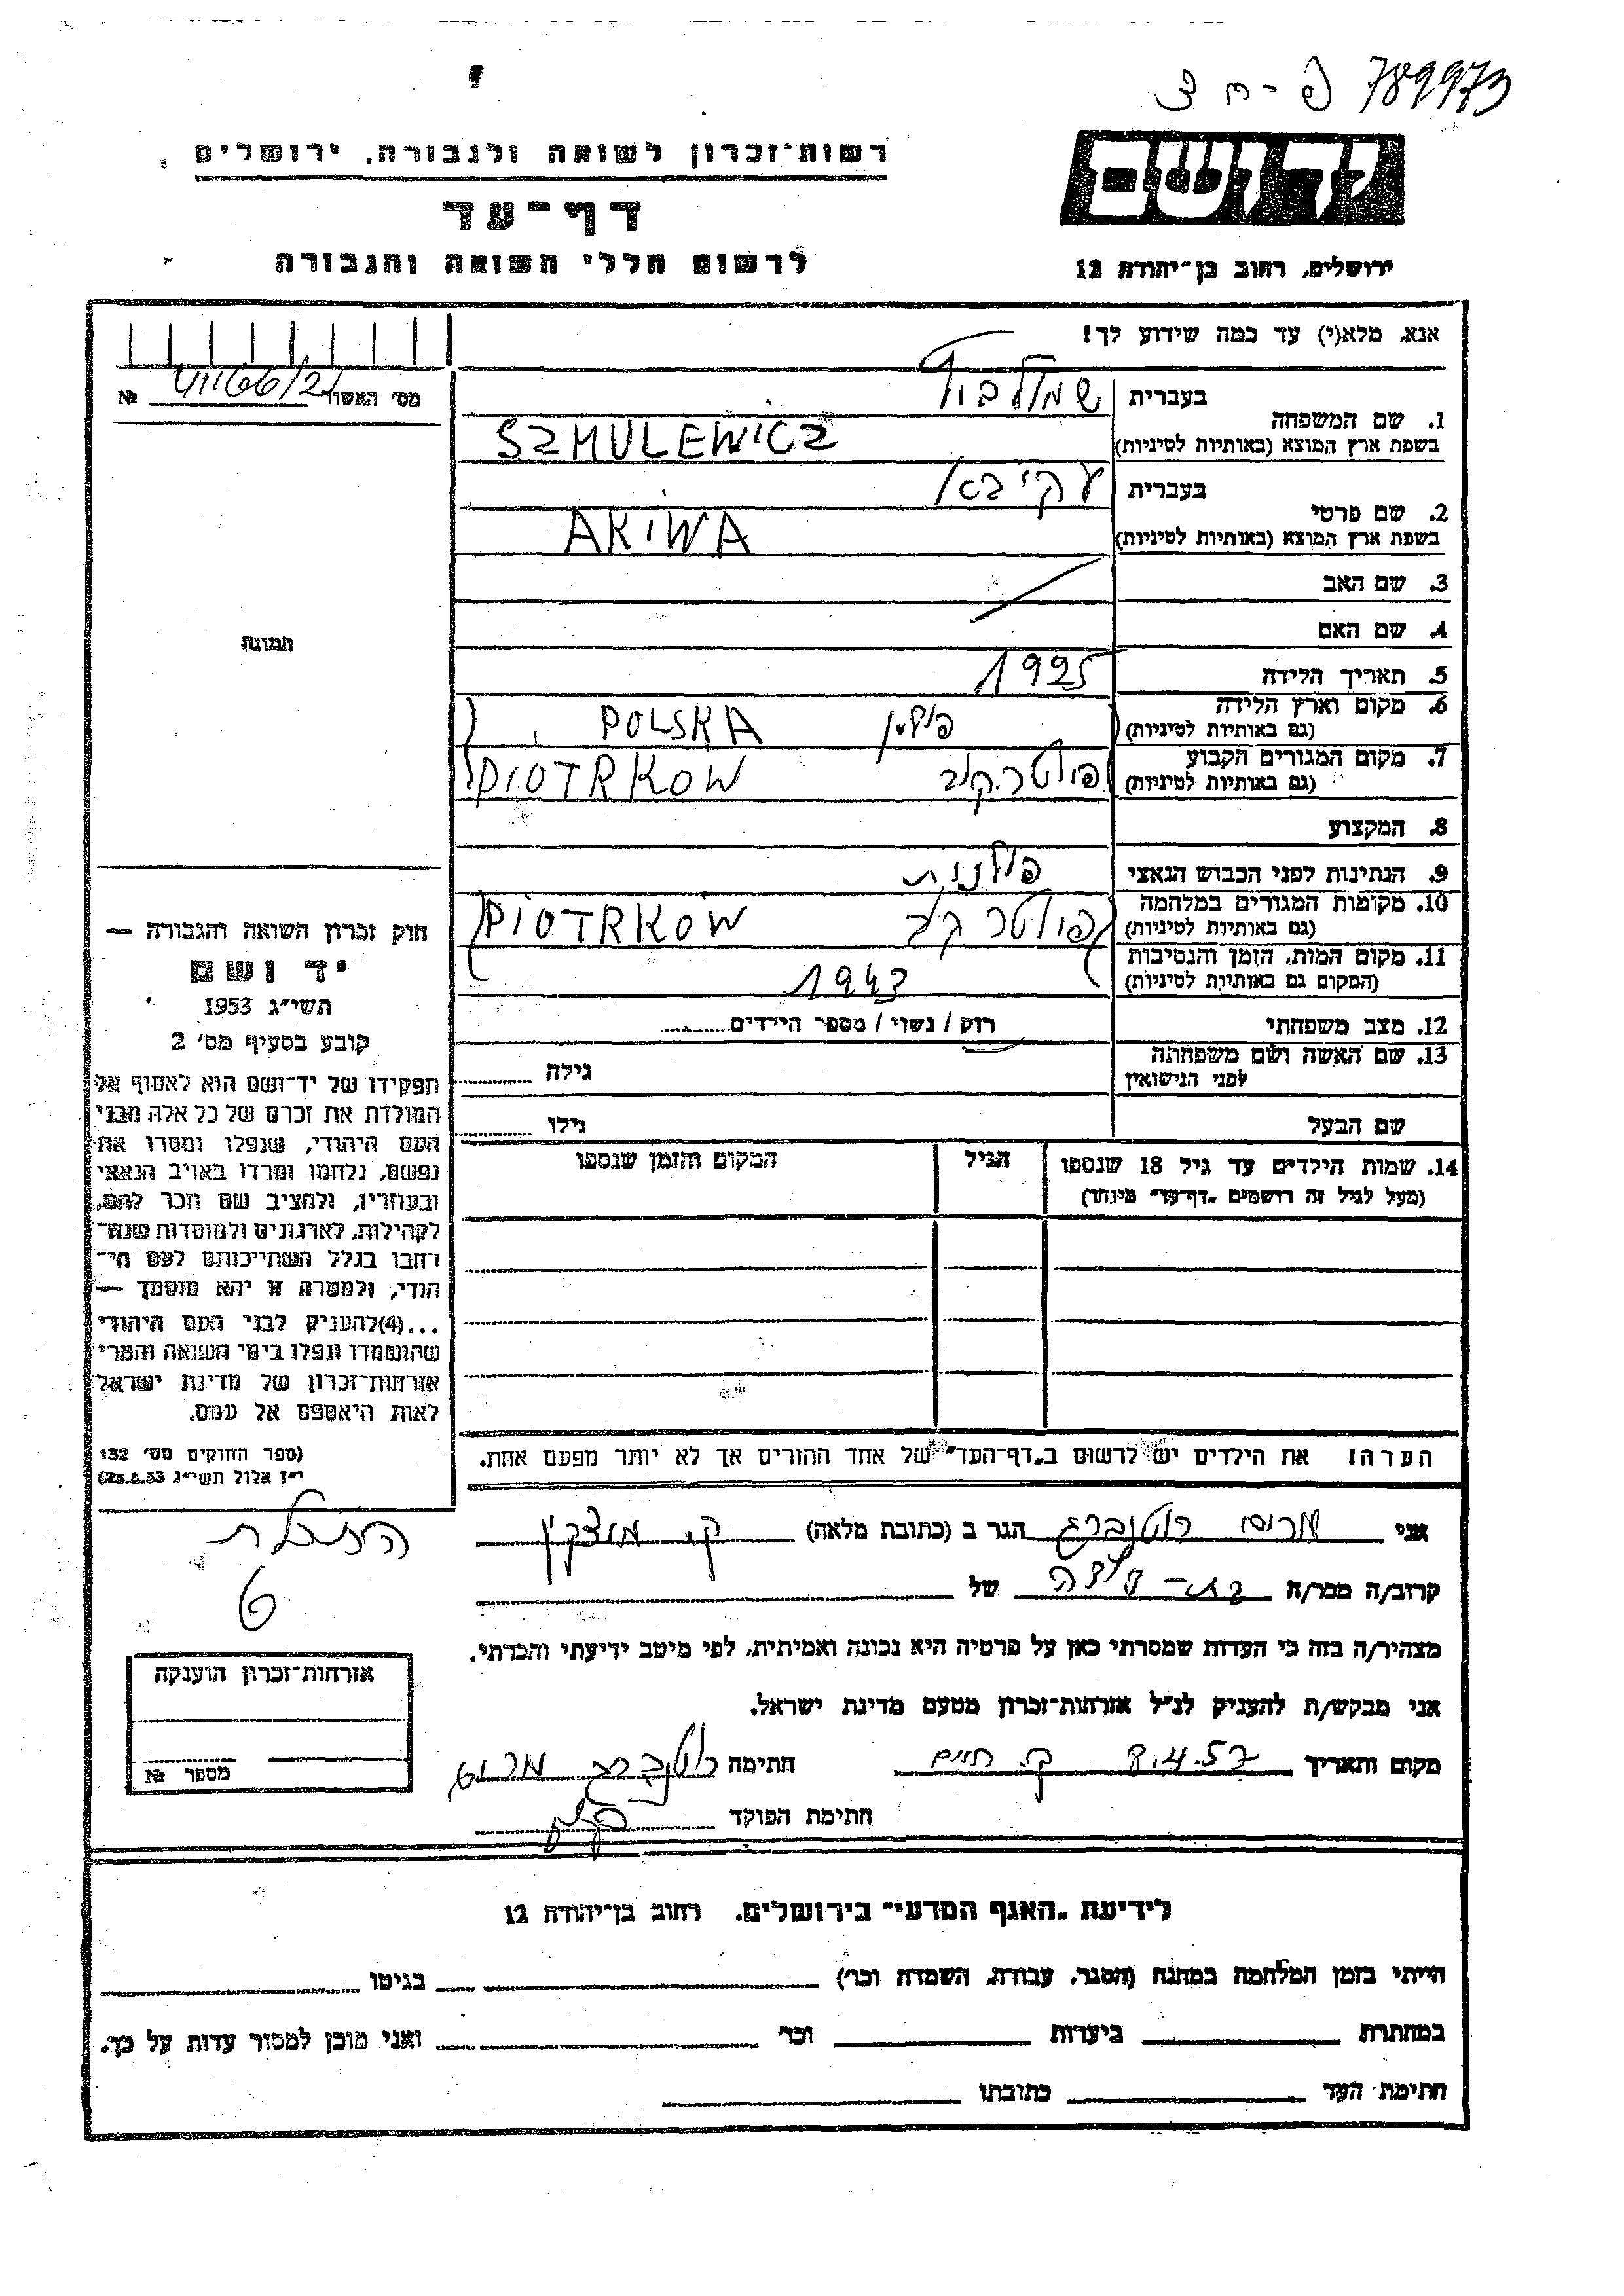 789973
פ - ח צ
יד ושם
ירושלים, רחוב בן־יהודה 12
רשות־זכרון לשואה ולגבורה, ירושלים
דף־עד
לרשום חללי השואה והגבורה
אנא, מלא(י) עד כמה שידוע לך!
מס' האשור №
תמונה
1. שם המשפחה בעברית
בשפת ארץ המוצא (באותיות לטיניות) SZMULEWICZ
2. שם פרטי בעברית עקיבא
בשפת ארץ המוצא (באותיות לטיניות) AKIWA
3. שם האב
4. שם האם
5. תאריך הלידה 1925
6. מקום וארץ הלידה (גם באותיות לטיניות) פולין POLSKA
7. מקום המגורים הקבוע (גם באותיות לטיניות) פיוטרקוב PIOTRKOW
8. המקצוע
9. הנתינות לפני הכבוש הנאצי פולנית
10. מקומות המגורים במלחמה (גם באותיות לטיניות) PIOTRKOW
11. מקום המות, הזמן והנסיבות (המקום גם באותיות לטיניות) 1943
12. מצב משפחתי רוק / נשוי / מספר הילדים
13. שם האשה ושם משפחתה לפני הנישואין גילה
שם הבעל גילו
14. שמות הילדים עד גיל 18 שנספו הגיל המקום והזמן שנספו
(מעל לגיל זה רושמים „דף־עד" מיוחד)
הערה! את הילדים יש לרשום ב„דף־העד" של אחד ההורים אך לא יותר מפעם אחת.
חוק זכרון השואה והגבורה —
יד ושם
תשי"ג 1953
קובע בסעיף מס' 2
תפקידו של יד־ושם הוא לאסוף אל
המולדת את זכרם של כל אלה מבני
העם היהודי, שנפלו ומסרו את
נפשם, נלחמו ומרדו באויב הנאצי
ובעוזריו, ולהציב שם וזכר להם,
לקהילות, לארגונים ולמוסדות שנח־
רבו בגלל השתייכותם לעם הי־
הודי, ולמטרה זו יהא מוסמך —
...(4)להעניק לבני העם היהודי
שהושמדו ונפלו בימי השואה והמרי
אזרחות־זכרון של מדינת ישראל
לאות היאספם אל עמם.
(ספר החוקים מס' 132
י"ז אלול תשי"ג 28.8.53)
אני רוטנברג הגר ב (כתובת מלאה) ק. מוצקין
6
קרוב/ה מכר/ה בת־דודה של
מצהיר/ה בזה כי העדות שמסרתי כאן על פרטיה היא נכונה ואמיתית, לפי מיטב ידיעתי והכרתי.
אני מבקש/ת להעניק לנ"ל אזרחות־זכרון מטעם מדינת ישראל.
מקום ותאריך 8.4.57 ק. חיים חתימה רוטנברג
חתימת הפוקד
אזרחות־זכרון הוענקה
מספר №
לידיעת „האגף המדעי" בירושלים. רחוב בן־יהודה 12
הייתי בזמן המלחמה במחנה (הסגר, עבודה, השמדה וכו') בגיטו
במחתרת ביערות וכו' ואני מוכן למסור עדות על כך.
חתימת העד כתובתו